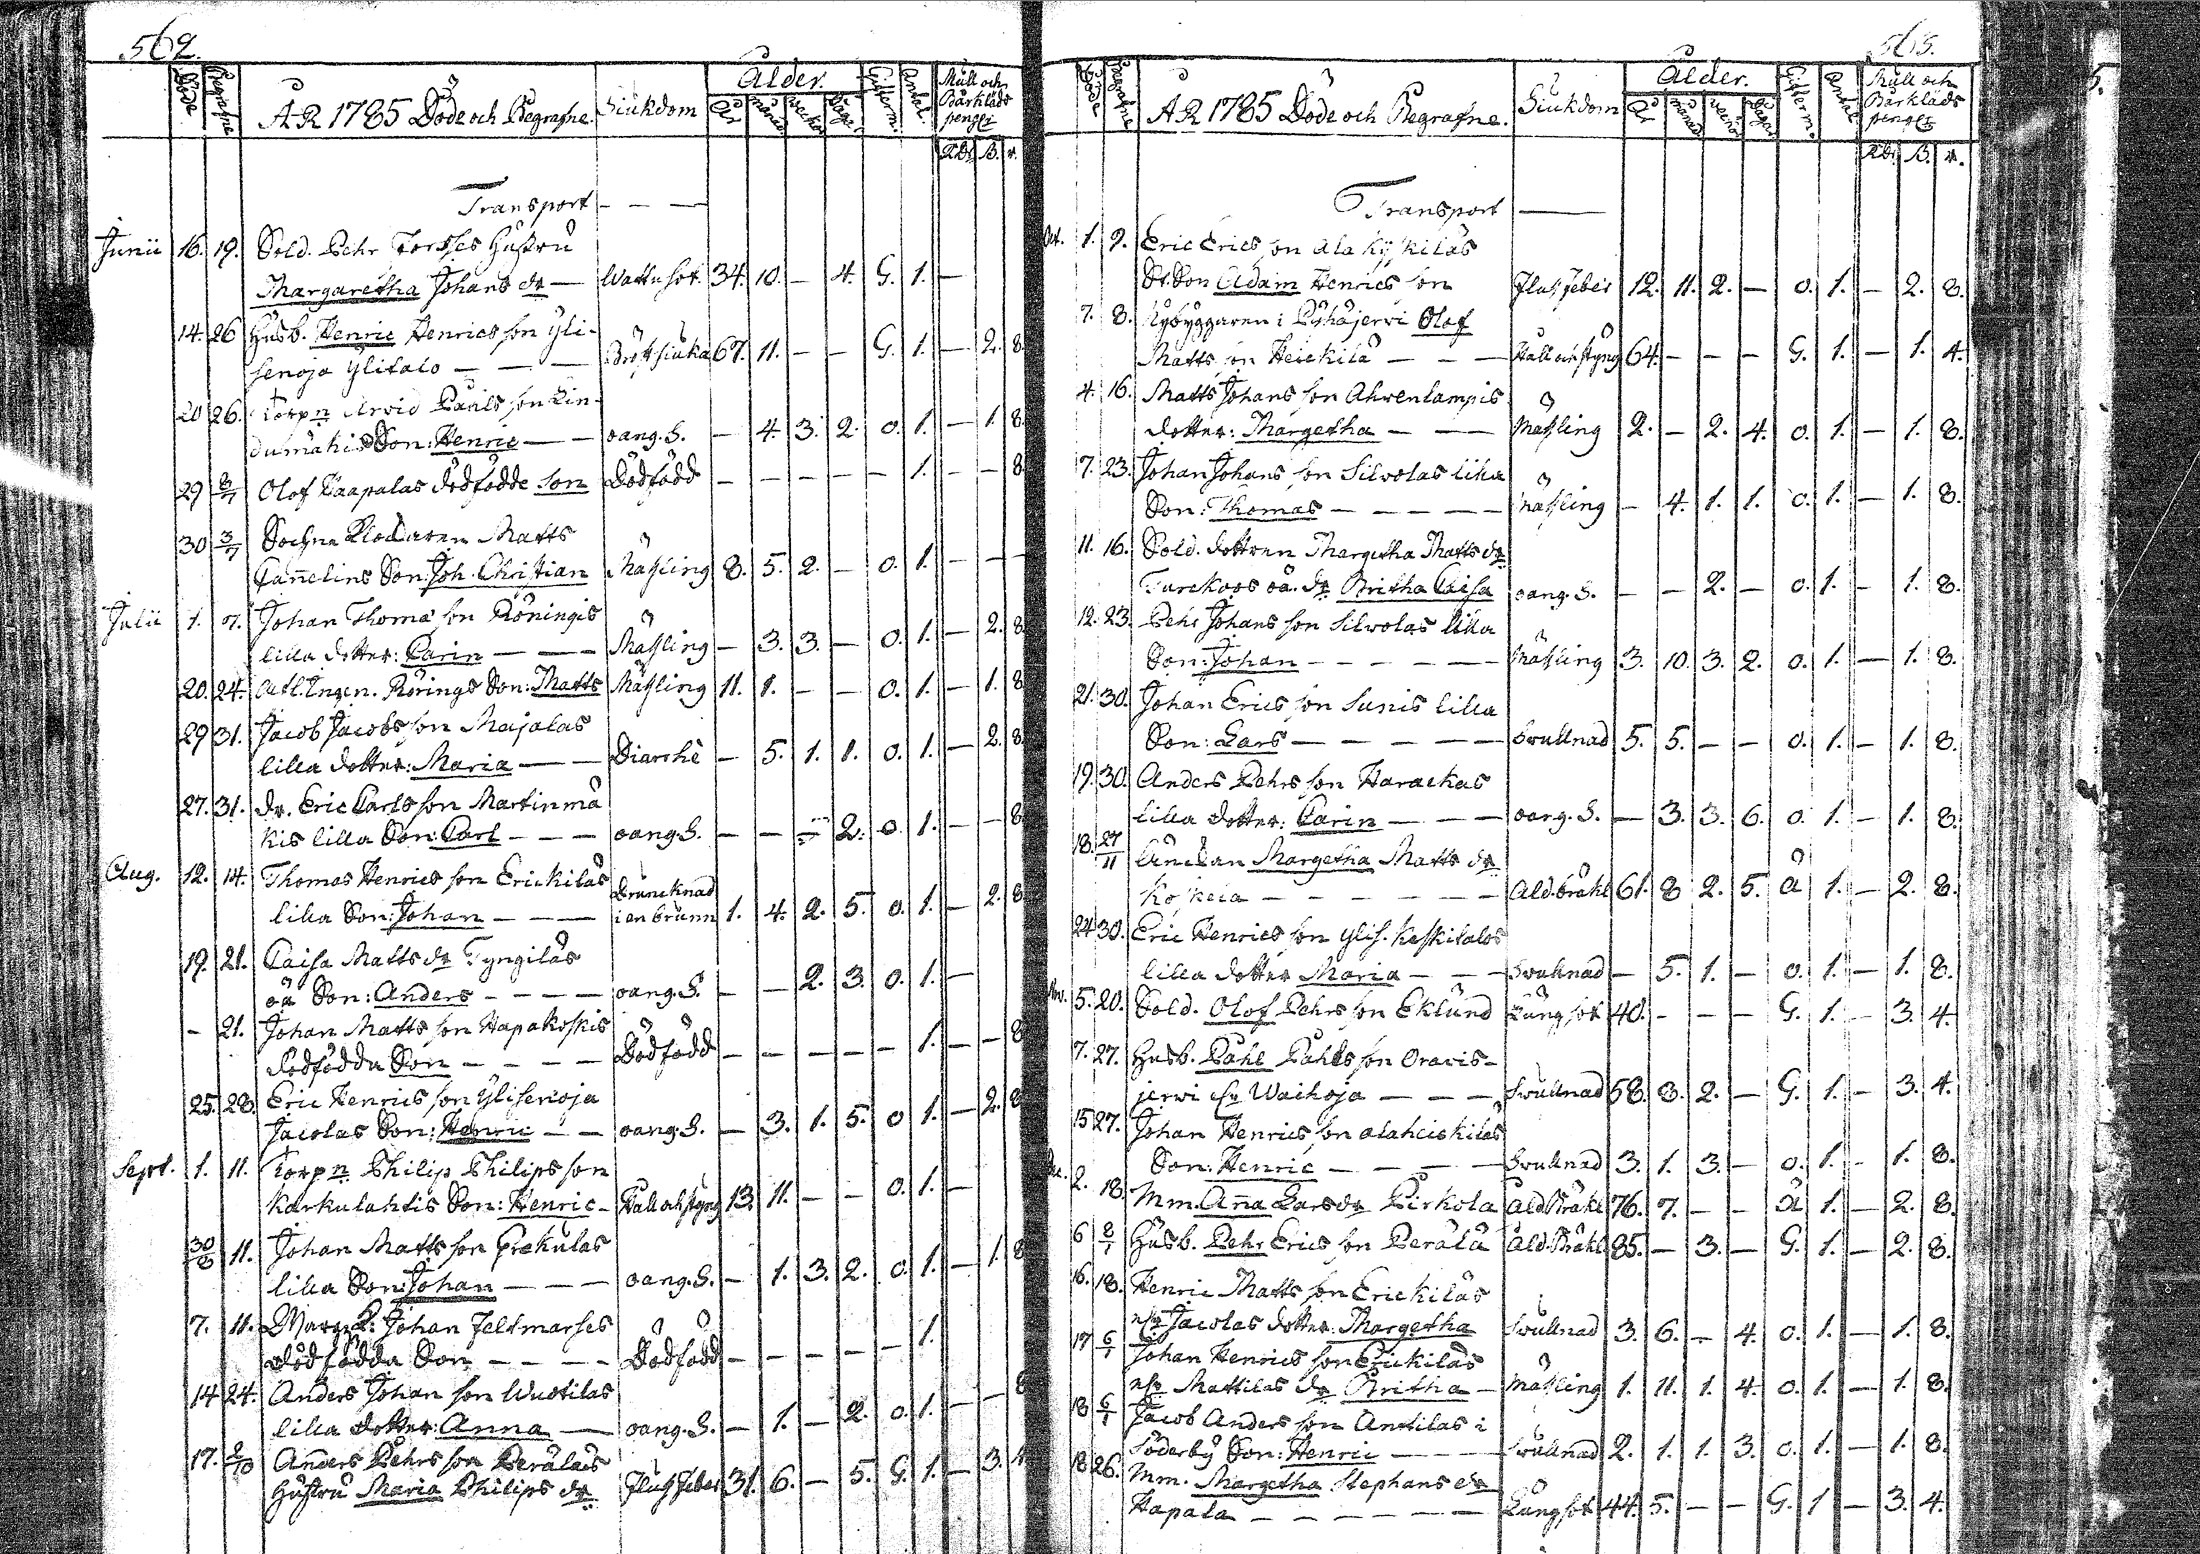 562.
Döde
Begrafne
AR 1785 Döde och Begrafne.
Siukdom
Ålder.
År
månad
veckor
dagar
Gifterm.
Antal.
Mull och
Bårkläds
peng:r
Rdr B. r.
Transport — — —
Junii 16. 19. Sold. Pehr Forsses Hustru
Margaretha Johans dr — Wattusot 34. 10. — 4. G. 1. —
14. 26 Husb. Henric Henrics son Yli-
senoja Ylitalo — — — Bröstsiuka 67. 11. — — G. 1. — 2. 8.
20 26. Torpn Arvid Pauls son Lin-
dumäkis Son: Henric — — oang. S. — 4. 3. 2. o. 1. — 1. 8.
29 3/7 Olof Haapalas dödfödde son Dödfödd — — — — — 1. — — 8.
30 3/7 Sochne Klockaren Matts
Cannelins Son: Joh. Christian Mässling 8. 5. 2. — o. 1. — — —
Julii 1. 7. Johan Thoma son Röningis
lilla dotter: Carin — — — Mässling — 3. 3. — o. 1. — 2. 8.
20. 24. Rörings Son: Matts Mässling 11. 1. — — o. 1. — 1. 8
29 31. Jacob Jacobs son Majalas
lilla dotter: Maria — — Diarrhé — 5. 1. 1. o. 1. — 2. 8.
27. 31. dr. Eric Carls son Martinmä
kis lilla Son: Carl — — — oang. S. — — — 2. o. 1. — — 8
Aug. 12. 14. Thomas Henrics son Erickilas
lilla Son: Johan — — — Druncknad
i en brunn 1. 4. 2. 5. o. 1. — 2. 8
19. 21. Caisa Matts dr Tyngiläs
oä Son: Anders — — — — oang. S. — — 2. 3. o. 1. —
— 21. Johan Matts son Hapakoskis
dödfödda Son — — — — Dödfödd — — — — — 1. — — 8
25. 28. Eric Henrics son Ylisenoja
Jacolas Son: Henric — — oang. S. — 3. 1. 5. o 1. — 2. 8
Sept. 1. 11. Torpn Philip Philips son
Karkulahtis Son: Henric — Håll och styng 13. 11. — — o. 1. —
30/8 11. Johan Matts son Prekulas
lilla Son: Johan — — — oang. S. — 1. 3. 2. o. 1. — 1. 8
7. 11. Johan Feltmarses
dödfödda Son — — — — Dödfödd — — — — — 1.
14 24. Anders Johan son Wuotilas
lilla dotter: Anna — oang. S. — 1. — 2. o. 1. — — 8
17. 2/10 Anders Pehrs son Peräläs
Hustru Maria Philips dr Fluss feber 31. 6. — 5. G. 1. — 3. 4
563.
Döde
Begrafne
AR 1785 Döde och Begrafne.
Siukdom
Ålder.
År
månad
veckor
dagar
Gifterm.
Antal
Mull och
Bårkläds
peng:r
Rdr B. r.
Transport ——
Oct. 1. 9. Eric Erics son Ala Kyskiläs
St. Son Adam Henrics son Fluss feber 12. 11. 2. — o. 1. — 2. 8.
7. 8. Nybyggaren i Pyhäjervi Olof
Matts son Heickilä — — — Håll och styng 64. — — — G. 1. — 1. 4.
4. 16. Matts Johans son Ahvenlampis
dotter: Margetha — — — Mässling 2. — 2. 4. o. 1. — 1. 8.
7. 23. Johan Johans son Silvolas lilla
Son: Thomas — — — — — Mässling — 4. 1. 1. o. 1. — 1. 8.
11. 16. Sold. dottren Margetha Matts dr
Turckoos oä. dr Britha Caisa oang. S. — — 2. — o. 1. — 1. 8.
12. 23. Pehr Johans son Silvolas lilla
Son: Johan — — — — — Mässling 3. 10. 3. 2. o. 1. — 1. 8.
21. 30. Johan Erics son Sunis lilla
Son: Lars — — — — — Svullnad 5. 5. — — o. 1. — 1. 8.
19. 30. Anders Pehrs son Harackas
lilla dotter: Carin — — — oang. S. — 3. 3. 6. o. 1. — 1. 8.
18. 27/11 Änckan Margetha Matts dr
Koskela — — — — — — Ald. bråkl 61. 8 2. 5. Ä 1. — 2. 8.
24 30. Eric Henrics son Ylis. Keskitalos
lilla dotter Maria — — — Svullnad — 5. 1. — o. 1. — 1. 8.
Nov. 5. 20. Sold. Olof Pehrs son Eklund Lungsot 40. — — — G. 1. — 3. 4.
7. 27. Husb. Påhl Påhls son Oravis-
jervi Waihoja — — — Svullnad 58. 8. 2. — G. 1. — 3. 4.
15 27. Johan Henrics son Alaheickiläs
Son: Henric — — — — Svullnad 3. 1. 3. — o. 1. — 1. 8.
Dec. 2. 18. Mm. Anna Lars dr Pirkola Ald. Bråkl 76. 7. — — Ä 1. — 2. 8.
6 8/1 Husb. Pehr Erics son Perälä Ald. Bråkl 85. — 3. — G. 1. — 2. 8.
16. 18. Henric Matts son Erickiläs
Jacolas dotter: Margetha Svullnad 3. 6. — 4. o. 1. — 1. 8.
17 6/1 Johan Henrics son Erickiläs
Mattilas dr Britha — Mässling 1. 11. 1. 4. o. 1. — 1. 8.
18 6/1 Jacob Anders son Anttilas i
Söderby Son: Henric — — — Svullnad 2. 1. 1. 3. o. 1. — 1. 8.
18 26. Mm. Margetha Stephans dr
Hapala — — — — — — Lungsot 44. 5. — — G. 1 — 3. 4.